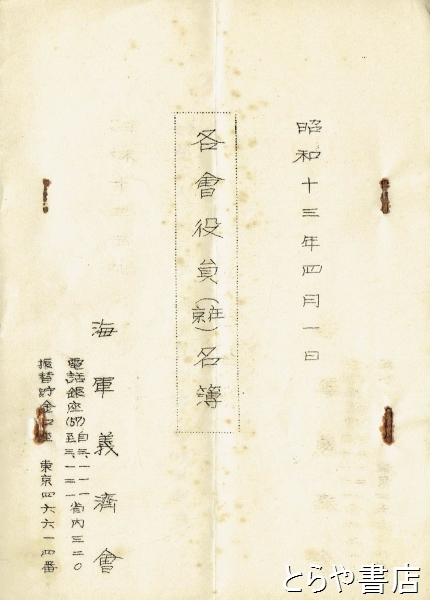 昭和十三年四月一日
各會役員（在京）名簿
海軍義濟會
電話銀座(57)自三、一一一至三、一二一省内三三〇
振替貯金口座 東京四六六一四番
とらや書店